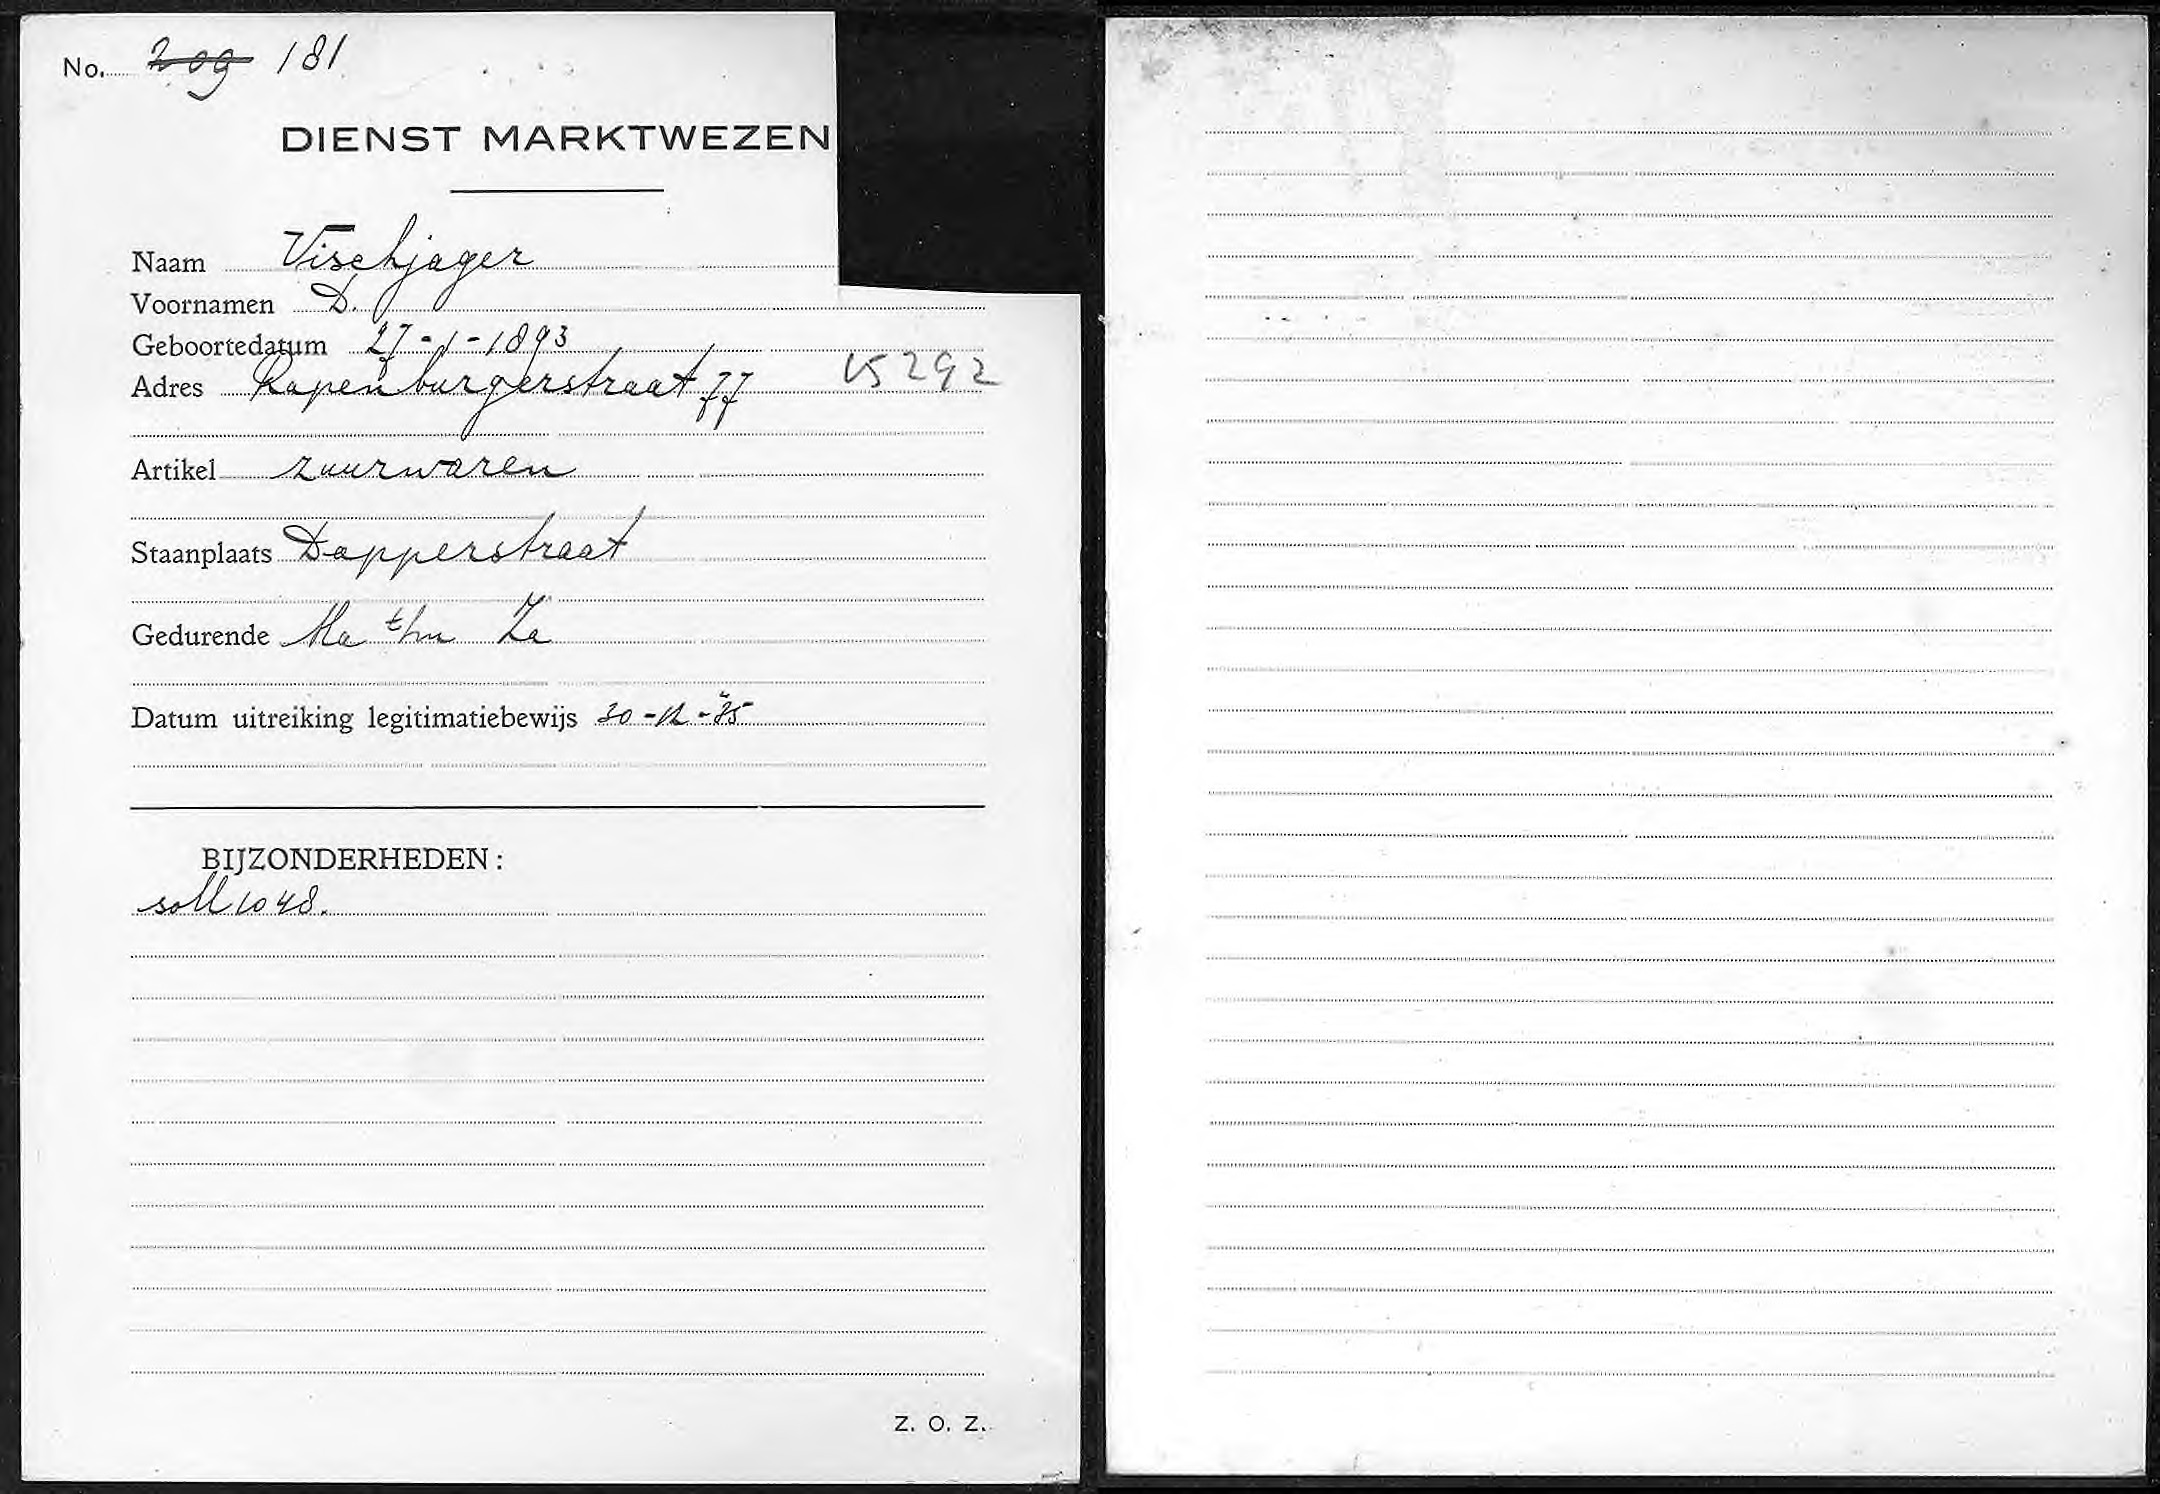 No. 209 181
DIENST MARKTWEZEN
Naam Vischjager
Voornamen D.
Geboortedatum 27-1-1893
Adres Rapenburgerstraat 77 V5292
Artikel zuurwaren
Staanplaats Dapperstraat
Gedurende Ma t/m Za
Datum uitreiking legitimatiebewijs 30-12-35
BIJZONDERHEDEN:
soll 1048.
Z. O. Z.